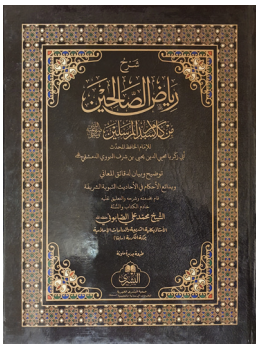 شرح
رياض الصالحين
من كلام سيد المرسلين
للإمام الحافظ المحدث
أبي زكريا محيي الدين يحيى بن شرف النووي الدمشقي
توضيح وبيان لدقائق المعاني
وبدائع الأحكام في الأحاديث النبوية الشريفة
قام بخدمته وشرحه والتعليق عليه
خادم الكتاب والسنة
الشيخ محمد علي الصابوني
البشرى